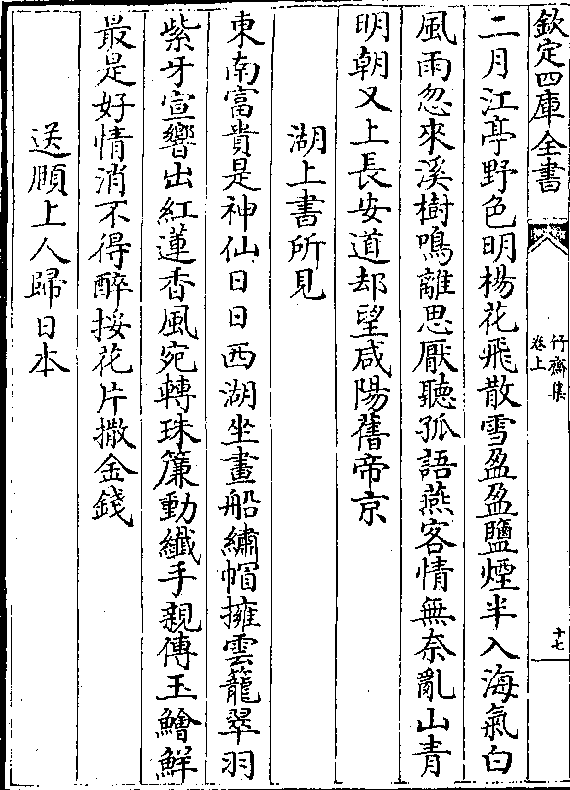 欽定四庫全書
竹齋集
卷上
十七
二月江亭野色明楊花飛散雪盈盈鹽煙半入海氣白
風雨忽來溪樹鳴離思厭聽孤語燕客情無奈亂山青
明朝又上長安道却望咸陽舊帝京
湖上書所見
東南富貴是神仙日日西湖坐畫船繡帽擁雲籠翠羽
紫牙宣響出紅蓮香風宛轉珠簾動纖手親傳玉鱠鮮
最是好情消不得醉挼花片撒金錢
送順上人歸日本